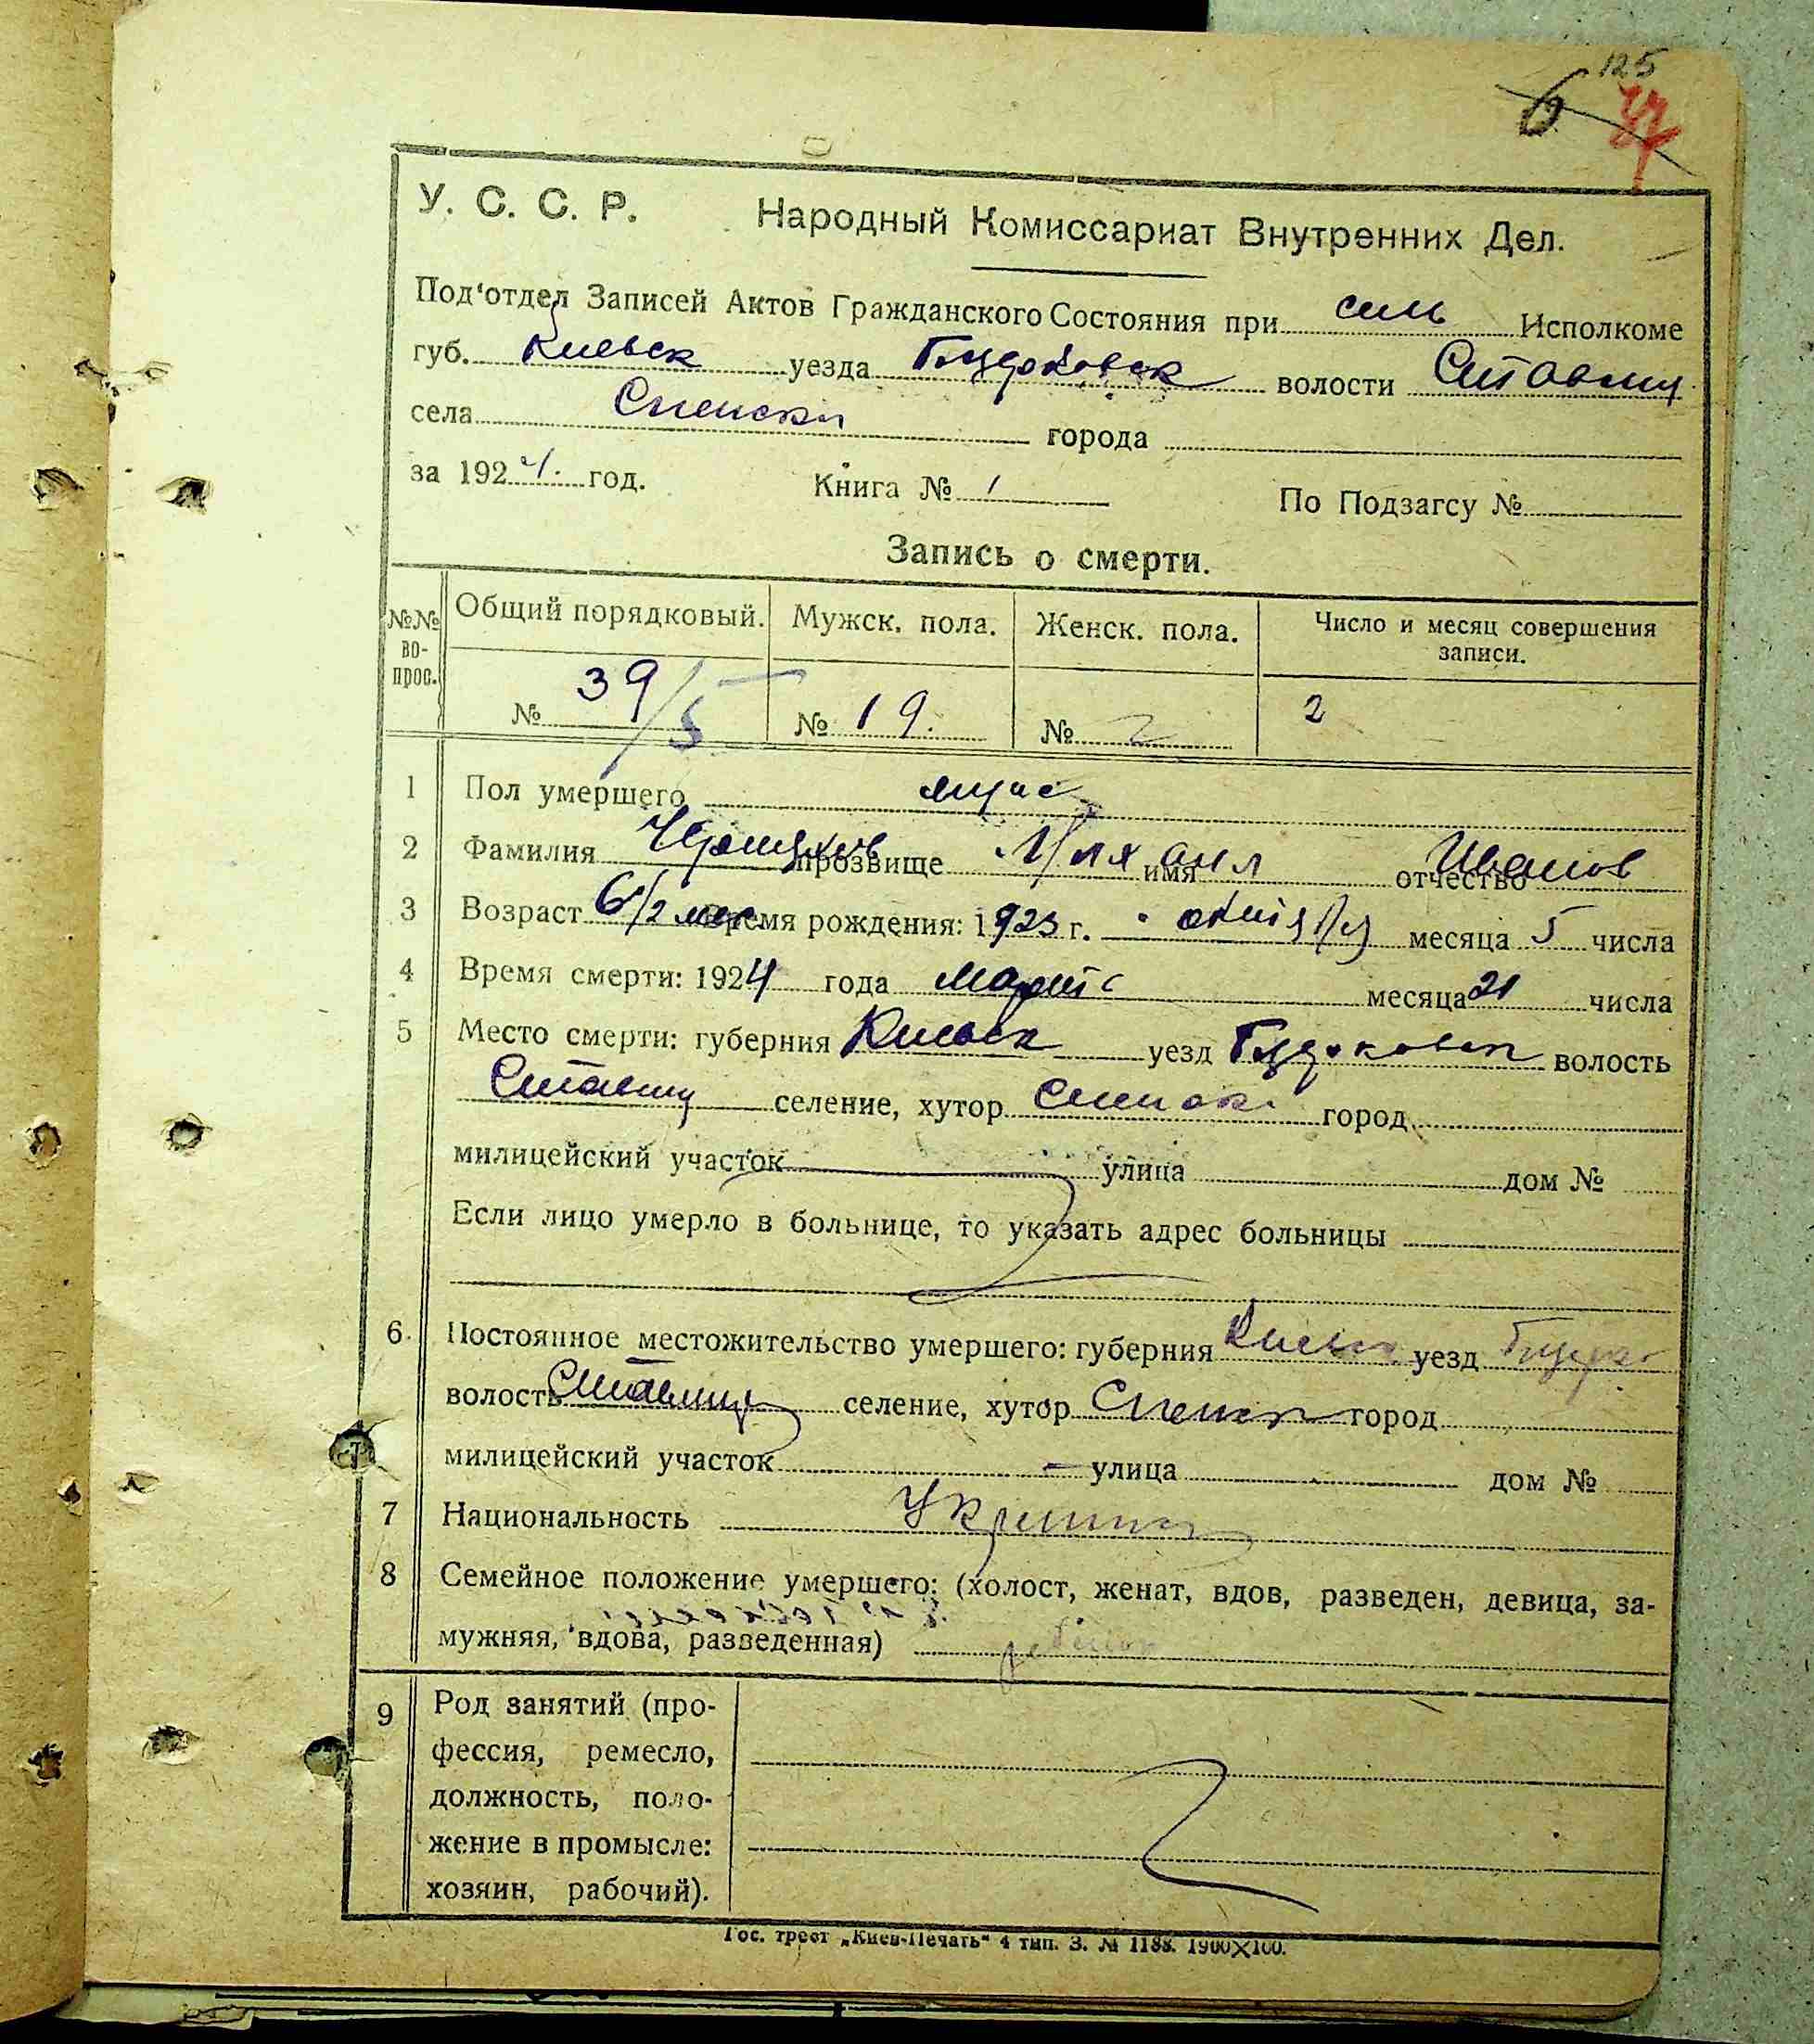 125
6
У. С. С. Р. Народный Комиссариат Внутренних Дел.
Под'отдел Записей Актов Гражданского Состояния при силь Исполкоме
губ. Киевск уезда волости Ставищ
села города
за 1924. год. Книга № 1 По Подзагсу №
Запись о смерти.
№№ во-прос. Общий порядковый. Мужск. пола. Женск. пола. Число и месяц совершения записи.
№ 39/5 № 19. № 2
1 Пол умершего муж
2 Фамилия прозвище Михаил имя Иванов отчество
3 Возраст 6 1/2 мес Время рождения: 1923 г. месяца 5 числа
4 Время смерти: 1924 года Марта месяца 21 числа
5 Место смерти: губерния Киевск уезд волость
Ставищ селение, хутор город
милицейский участок улица дом №
Если лицо умерло в больнице, то указать адрес больницы
6. Постоянное местожительство умершего: губерния Киевск уезд
волость Ставищ селение, хутор город
милицейский участок — улица дом №
7 Национальность
8 Семейное положение умершего: (холост, женат, вдов, разведен, девица, за-
мужняя, вдова, разведенная)
9 Род занятий (про-
фессия, ремесло,
должность, поло-
жение в промысле:
хозяин, рабочий).
Гос. трест „Киев-Печать“ 4 тип. З. № 1188. 1900X100.